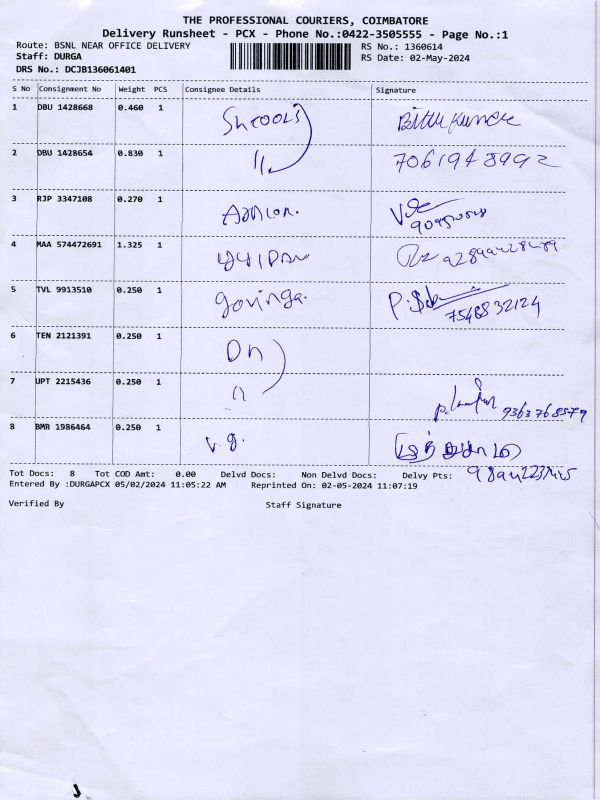 THE PROFESSIONAL COURIERS, COIMBATORE
Delivery Runsheet - PCX - Phone No.:0422-3505555 - Page No.:1
Route: BSNL NEAR OFFICE DELIVERY RS No.: 1360614
Staff: DURGA RS Date: 02-May-2024
DRS No.: DCJB136061401
S No Consignment No Weight PCS Consignee Details Signature
1 DBU 1428668 0.460 1
2 DBU 1428654 0.830 1 7061948992
3 RJP 3347108 0.270 1
4 MAA 574472691 1.325 1
5 TVL 9913510 0.250 1 govinga. 7548832124
6 TEN 2121391 0.250 1 On
7 UPT 2215436 0.250 1 9363768579
8 BMR 1986464 0.250 1 V.g.
Tot Docs: 8 Tot COD Amt: 0.00 Delvd Docs: Non Delvd Docs: Delvy Pts:
Entered By :DURGAPCX 05/02/2024 11:05:22 AM Reprinted On: 02-05-2024 11:07:19
Verified By Staff Signature